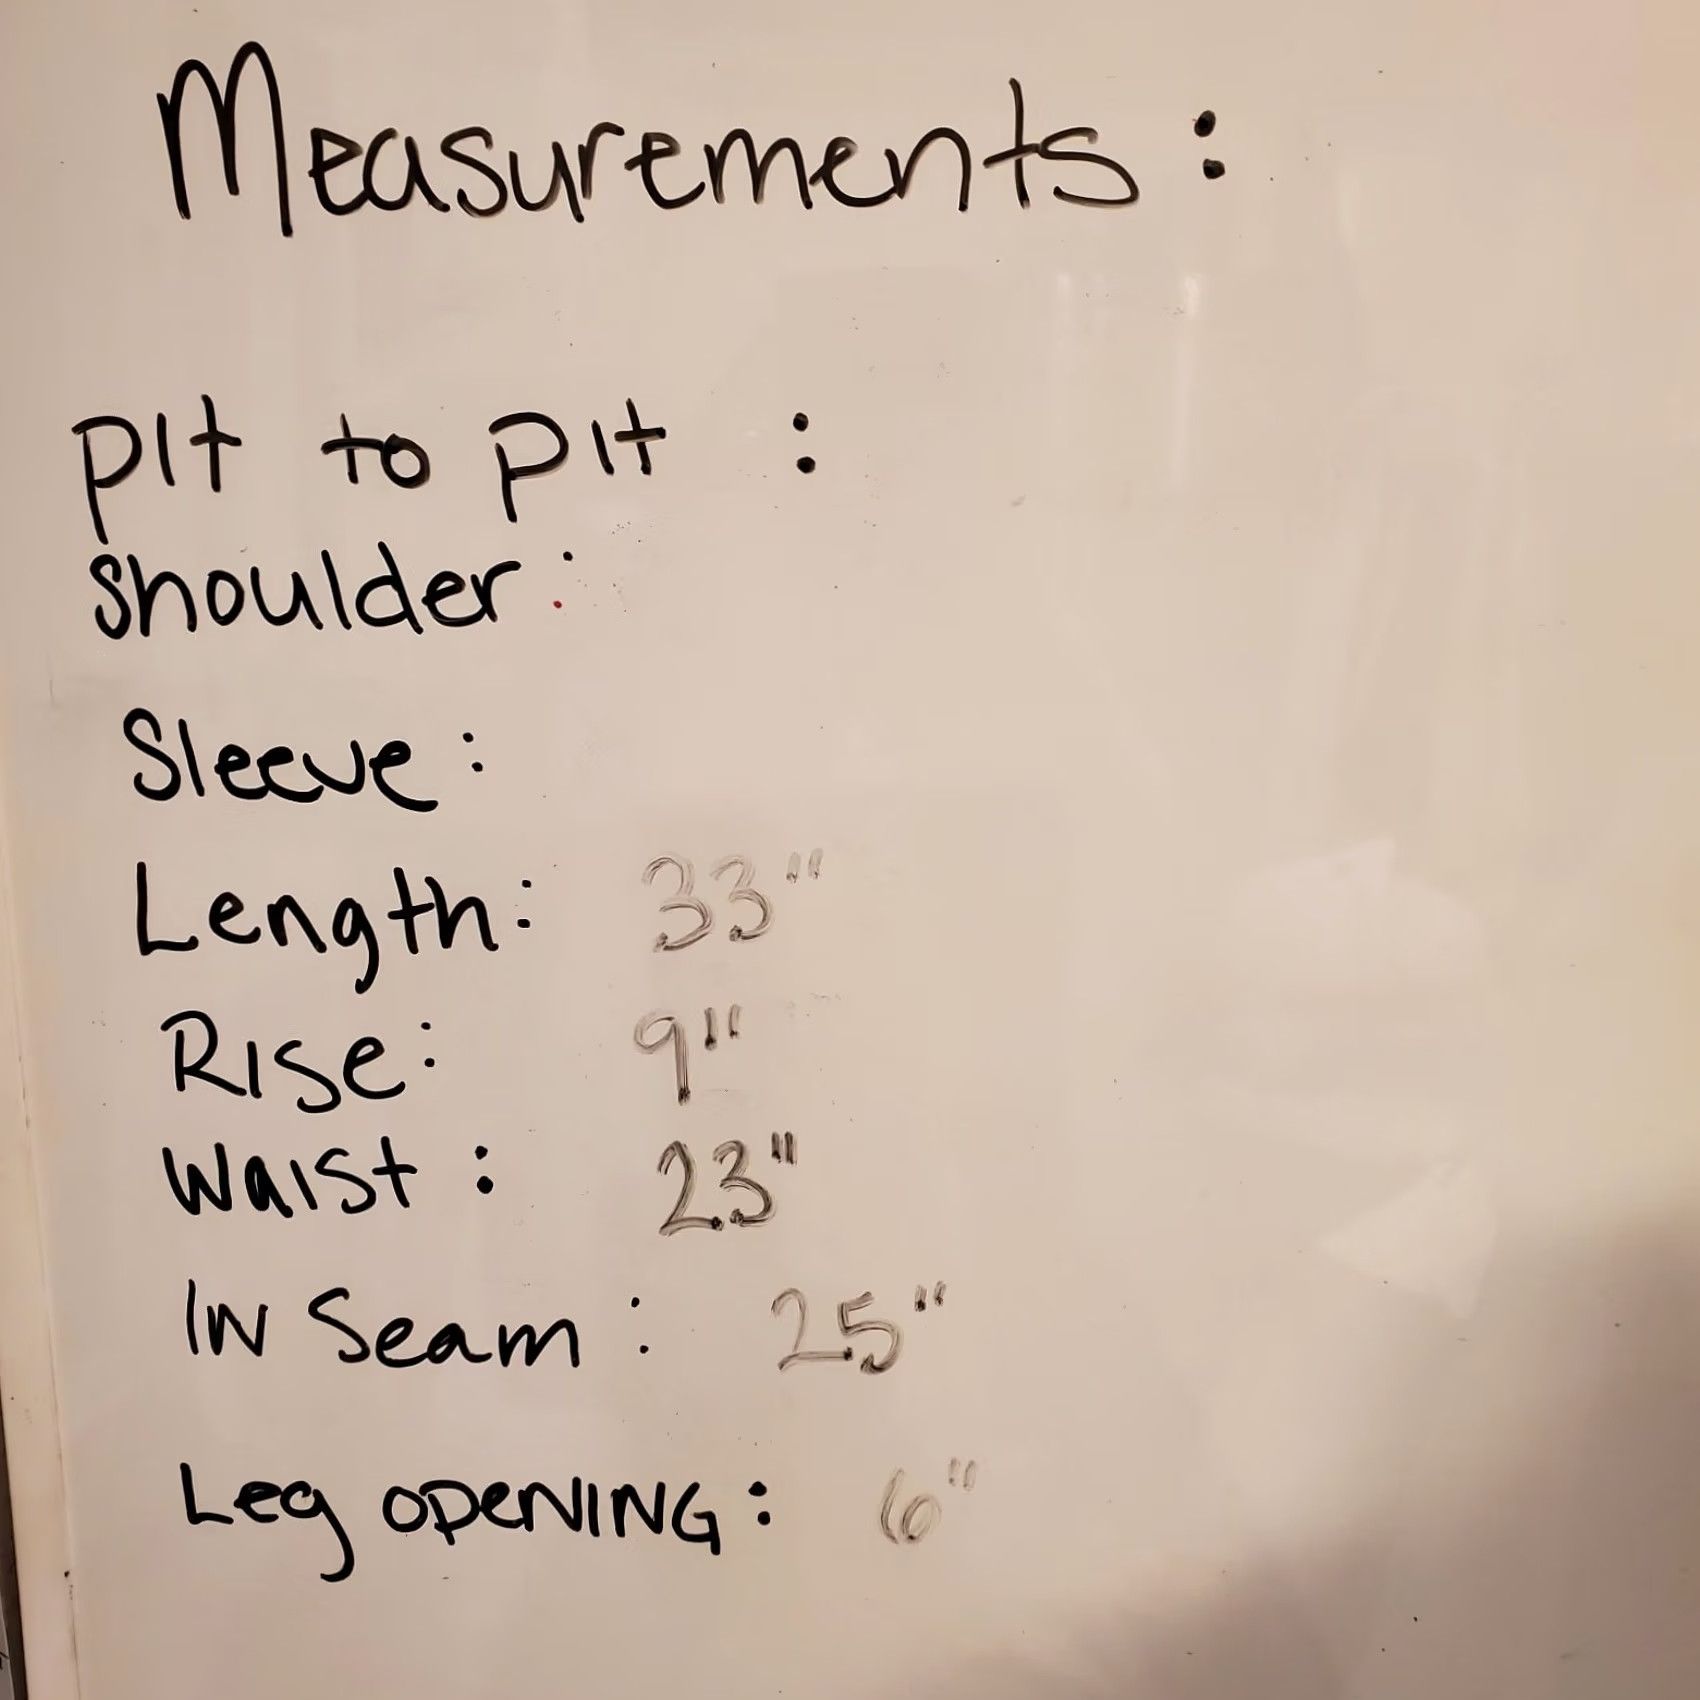 Measurements:
pit to pit :
shoulder:
Sleeve:
Length: 33"
Rise: 9"
Waist: 23"
IN Seam: 25"
Leg OPENING: 6"